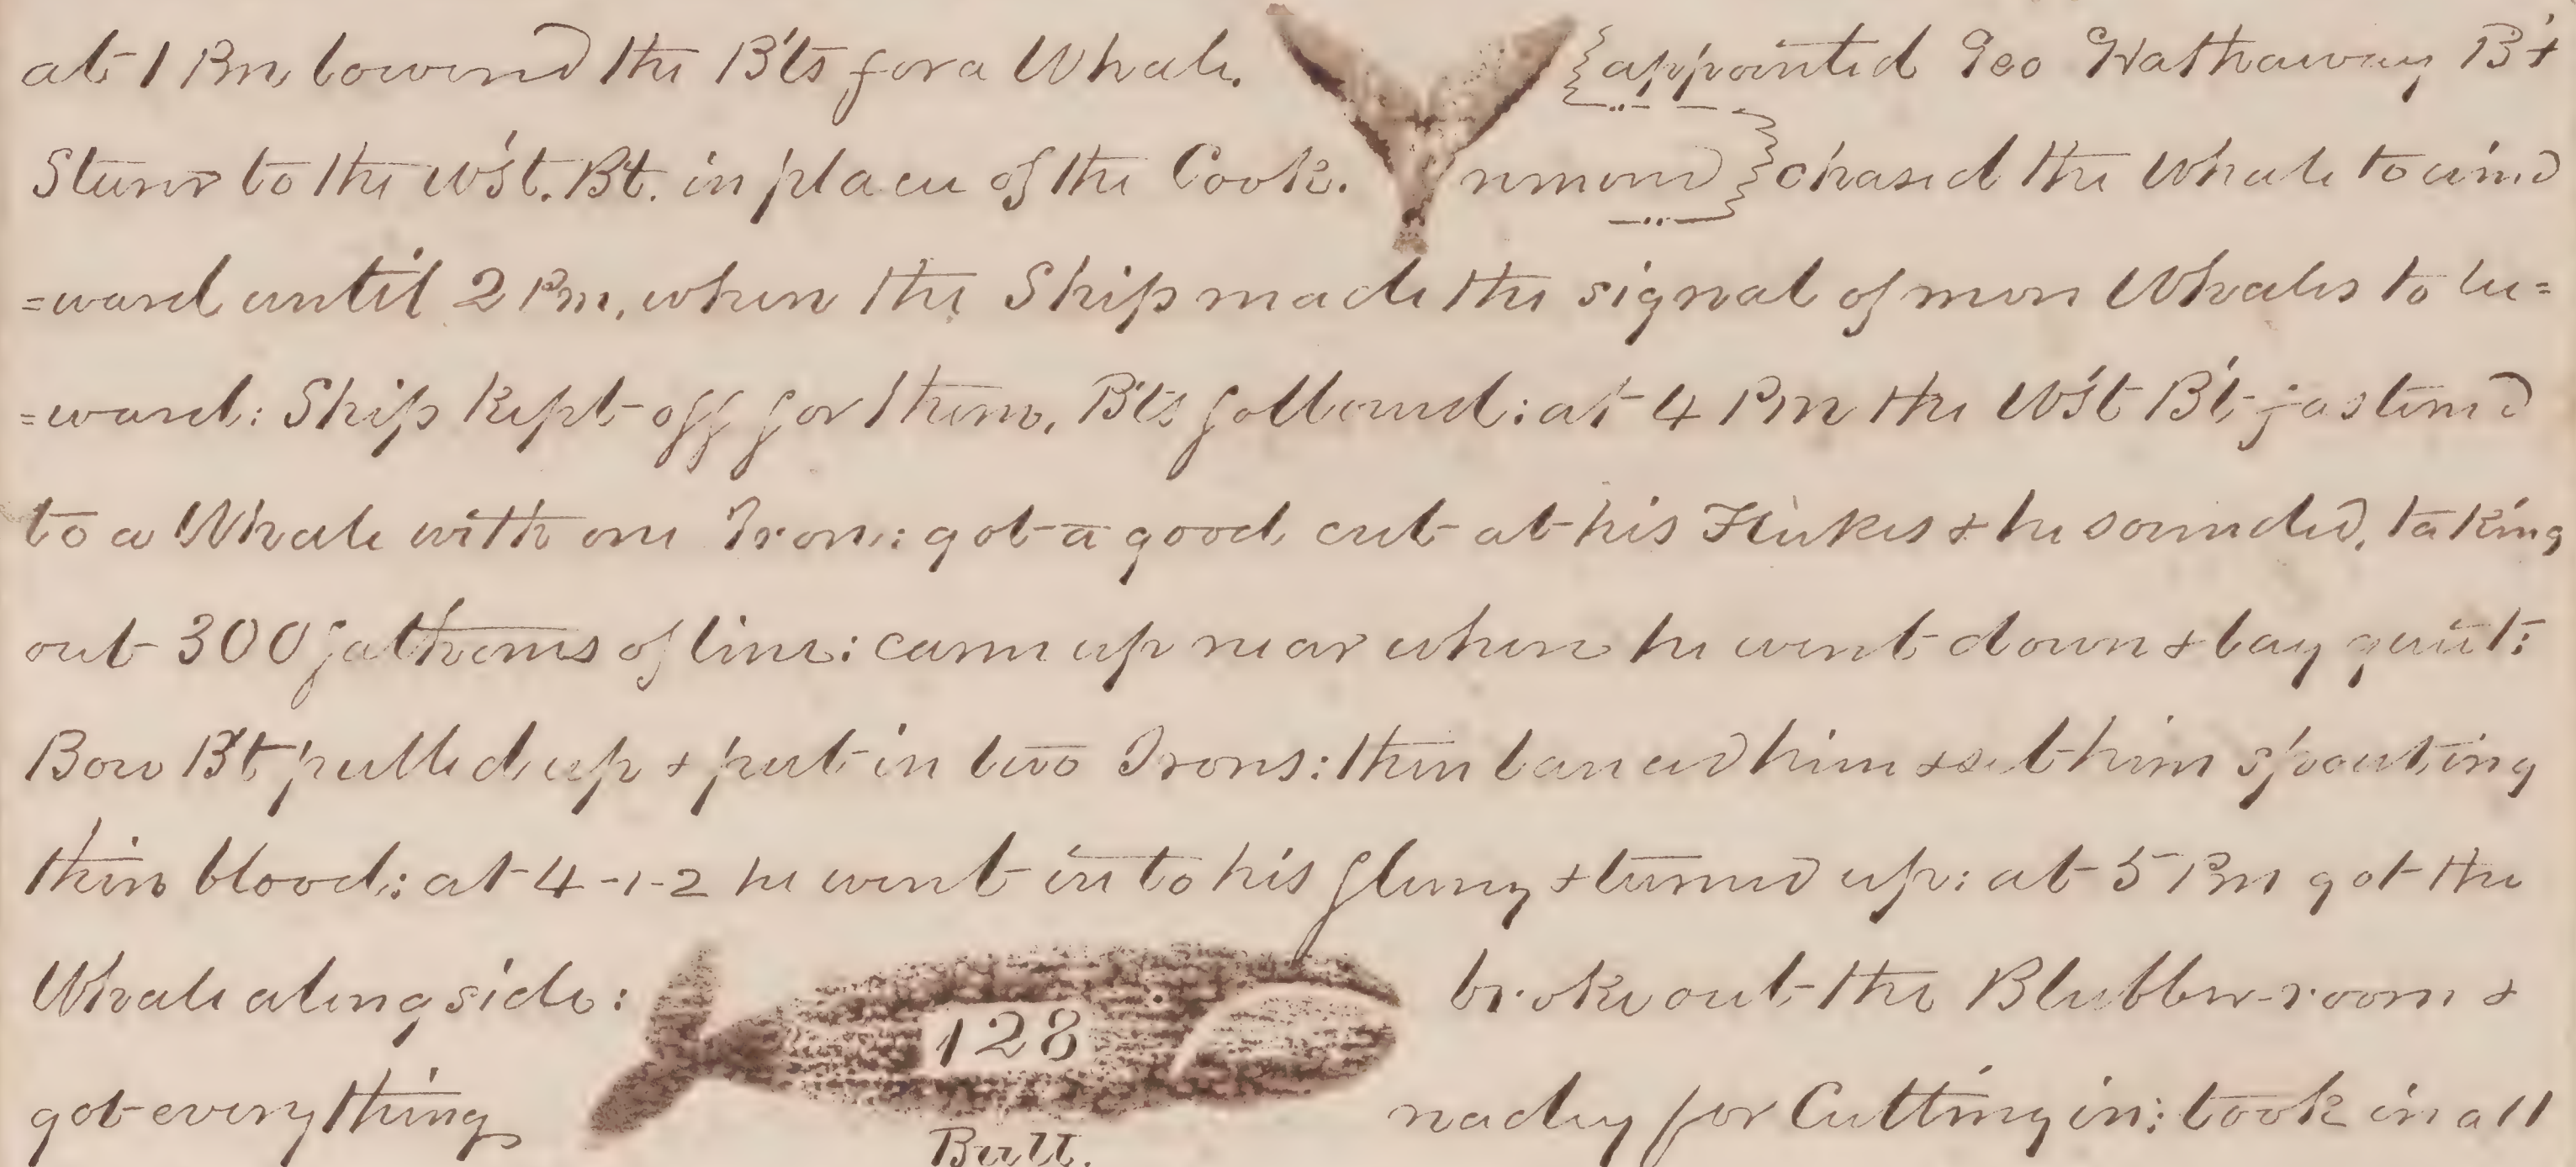 at 1 Pm lowered the B'ts for a Whale. {appointed Geo Hathaway B't
Steerer to the W'st. Bt. in place of the Cook. removed} chased the Whale to wind
=ward until 2 Pm, when the Ship made the signal of more Whales to lee=
=ward: Ship kept off for them, B'ts followed: at 4 Pm the W'st B't fastened
to a Whale with one Iron: got a good cut at his Flukes & he sounded, taking
out 300 fathoms of line: came up near where he went down & lay quiet:
Bow B't pulled up & put in two Irons: then lanced him & set him spouting
thin blood: at 4-1-2 he went in to his flurry & turned up: at 5 Pm got the
Whale alongside: broke out the Blubber-room &
128
got everything ready for Cutting in: took in all
Bull.